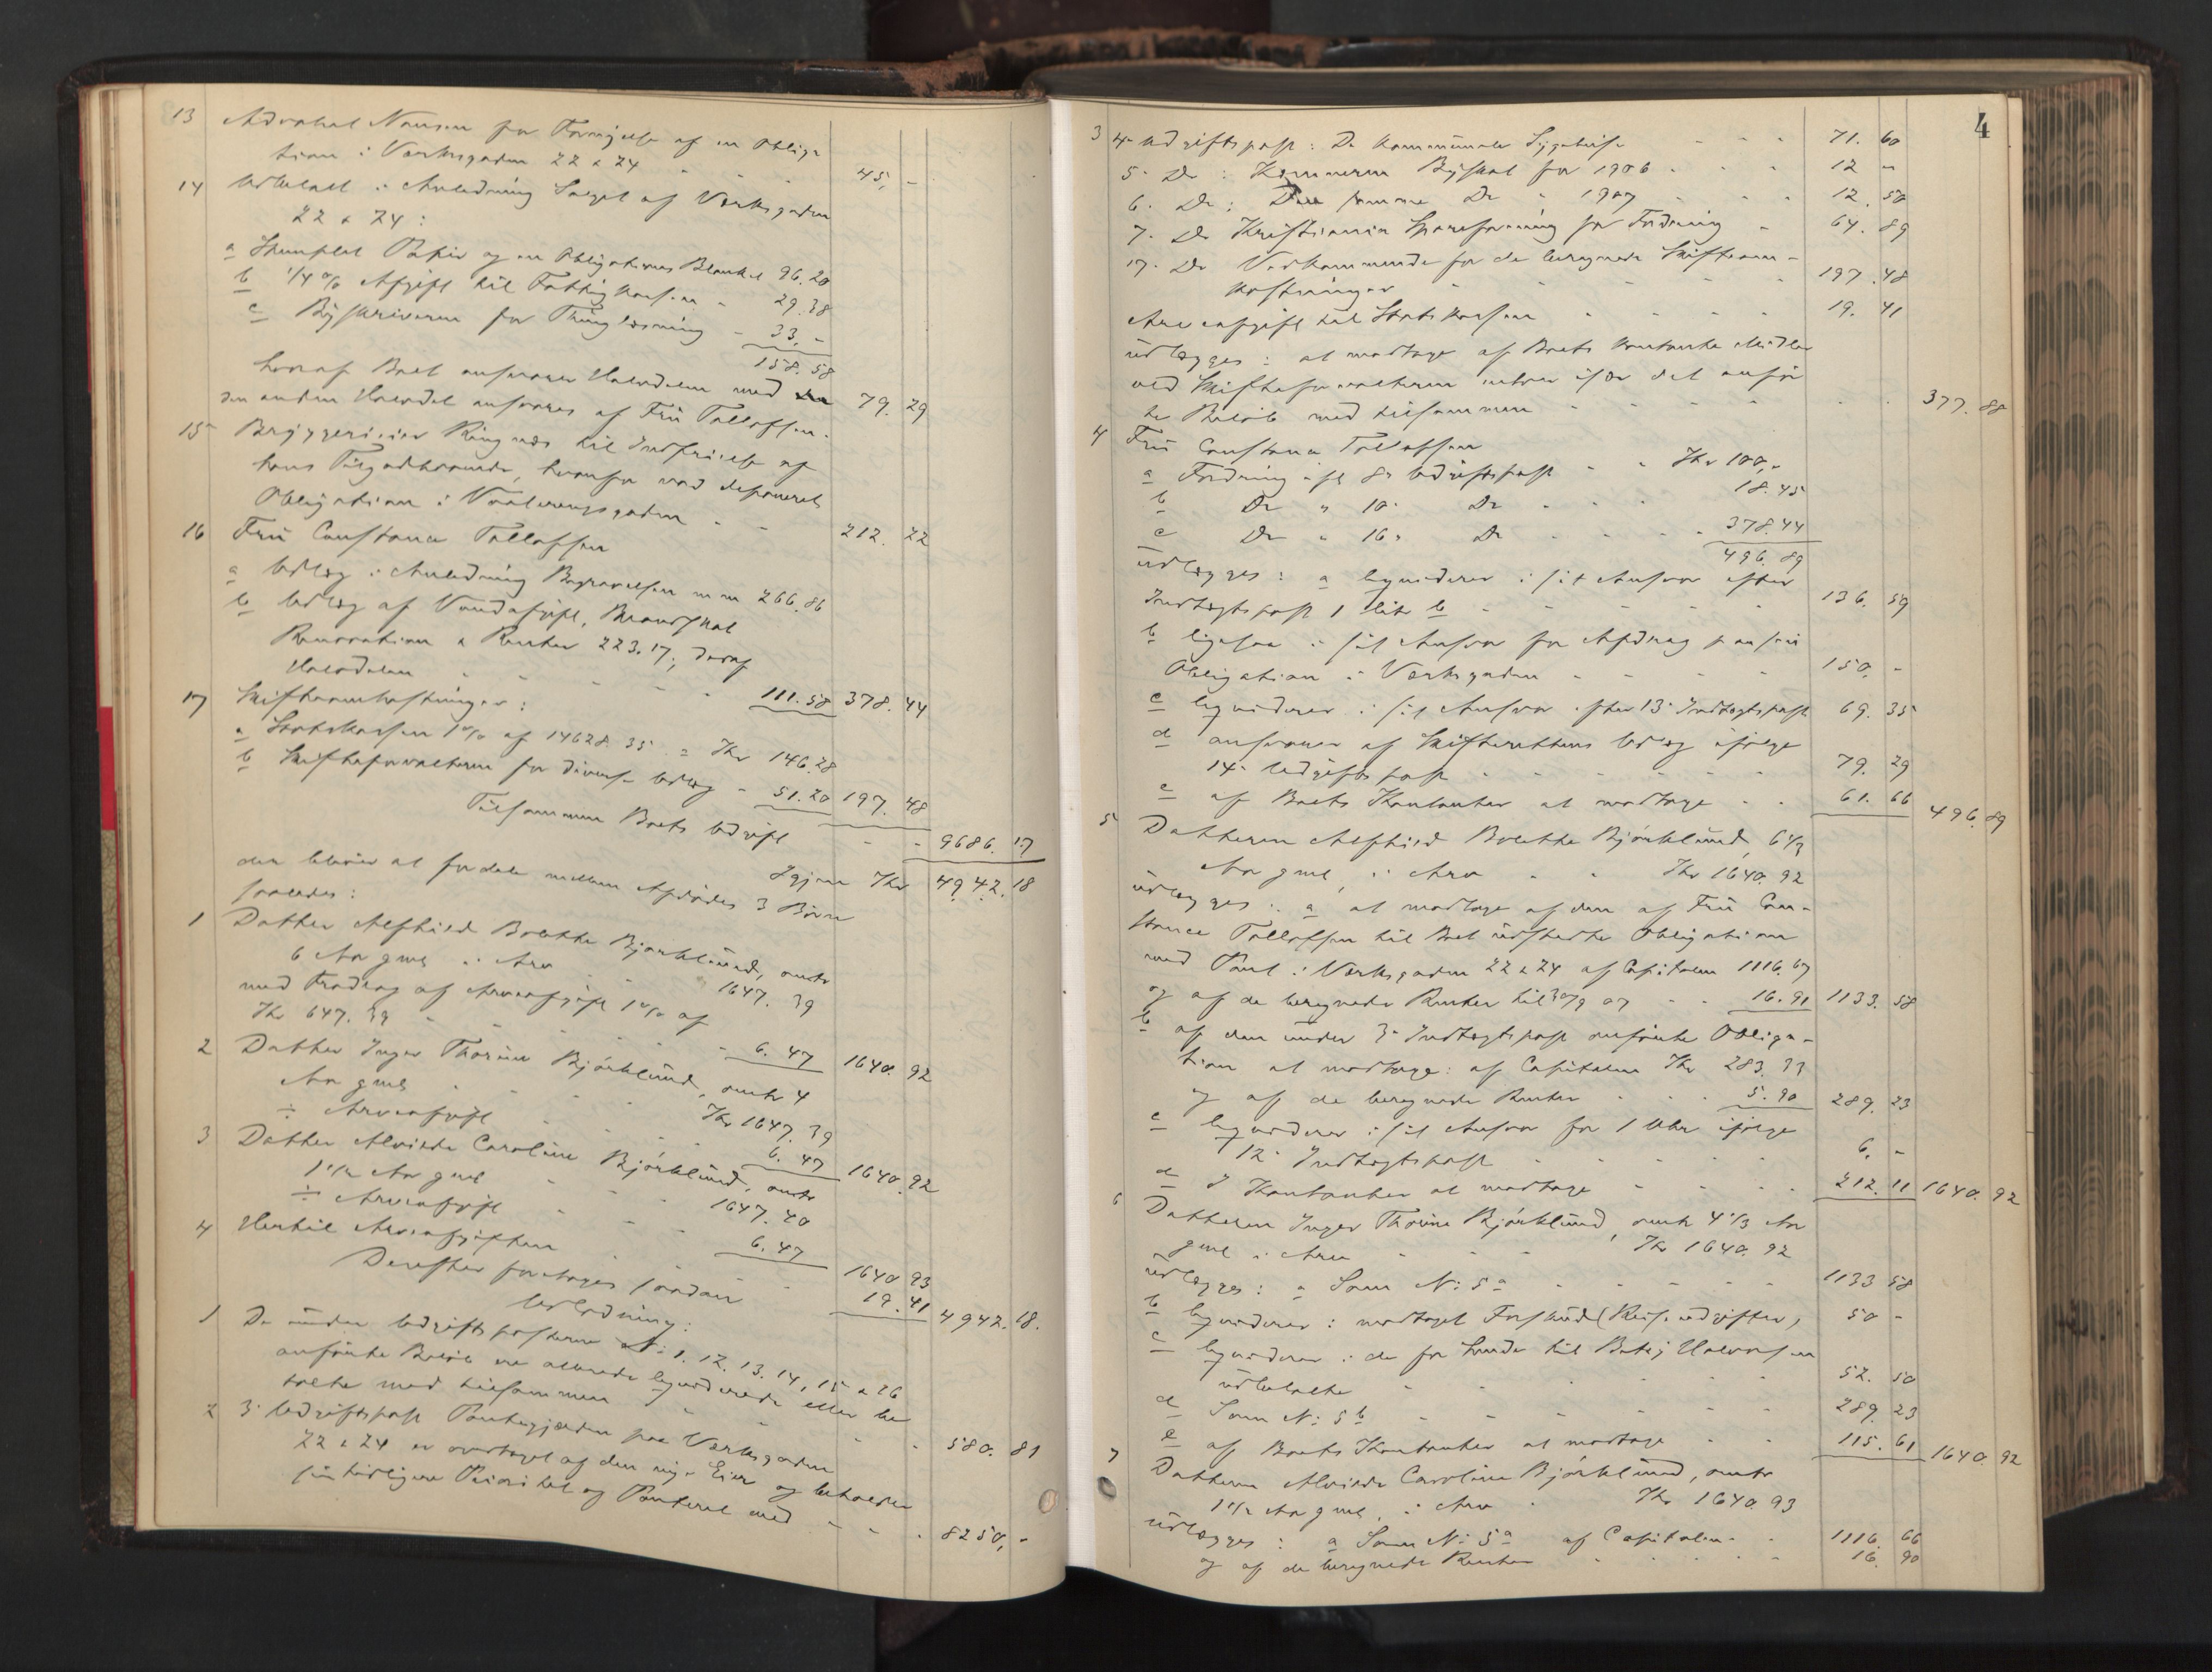 13 Advokat Nansen for Fornyelse af en Obliga-
tion i Værksgaden 22 & 24 - - 45, -
14 Udbetalt i Anledning Salget af Værksgaden
22 & 24:
a Stemplet Papir og en Obligations Blanket 96.20
b 1/4 % Afgift til Fattigkassen - 29.38
c Byskriveren for Thinglæsning - 33. -
158.58
hvoraf Boet ansvarer Halvdelen med 79. 29
den anden Halvdel ansvares af Fru Tollefsen.
15 Bryggerieier Ringnæs til Indfrielse af
hans Tilgodehavende, hvorfor var deponeret
Obligation i Vaalerengsgaden - - 212. 22
16 Fru Constance Tollefsen
a Udlæg i Anledning Begravelsen m m 266.86
b Udlæg af Vandafgift, Brandskat
Renovation & Renter 223.17, deraf
Halvdelen - - - - - 111.58 378. 44
17 Skifteomkostninger:
a Statskassen 1 % af 14628.35 = Kr 146.28
b Skifteforvalteren for diverse Udlæg - 51.20 197. 48
Tilsammen Boets Udgift - - 9686. 17
Igjen Kr 4942. 18
der bliver at fordele mellem Afdødes 3 Børn
saaledes:
1 Datter Alfhild Bolette Bjørklund, omtr
6 Aar gml i Arv 1647. 39
med Fradrag af Arveafgift 1 % af
Kr 647. 39 - - - - 6. 47 1640. 92
2 Datter Inger Thorine Bjørklund, omtr 4
Aar gml - - - Kr 1647. 39
÷ Arveafgift - - - 6. 47 1640. 92
3 Datter Alvilde Caroline Bjørklund, omtr
1 1/2 Aar gml - - 1647. 40
÷ Arveafgift - - - 6. 47 1640 93
4 Hertil Arveafgiften - - 19. 41 4942. 18.
Derefter foretages saadan
Udlodning:
1 De under Udgiftsposterne N: 1. 12. 13. 14, 15 & 16
anførte Beløb er allerede likviderede eller be
talte med tilsammen - - - - 580. 81
2 3. Udgiftspost Pantegjælden paa Værksgaden
22 & 24 er overtaget af den nye Eier og beholder
sin tidligere Prioritet og Panteret med - - - 8250, -
4
3 4. Udgiftspost: De kommunale Sygehuse - - - 71. 60
5. Do : Kæmneren Byskat for 1906 - - - 12 -
6. Do : Den samme Do " 1907 - - - 12. 50
7. Do Kristiania Spareforening for Fordring - 64. 89
17. Do Vedkommende for de beregnede Skifteom-
kostninger - - - - - 197. 48
Arveafgift til Statskassen - - - - 19. 41
udlægges: at modtage af Boets kontante Midler
ved Skifteforvalteren enhver især det anfør
te Beløb med tilsammen - - - - - - 377. 88
4 Fru Constance Tollefsen
a Fordring ifl 8. Udgiftspost - - Kr 100, -
b Do " 10. Do - - - 18.45
c Do " 16. Do - - - - 378.44
496. 89
udlægges: a likviderer i sit Ansvar efter
Indtægtspost 1 litr b - - - - - 136. 59
b ligesaa i sit Ansvar for Afdrag paa sin
Obligation i Værksgaden - - - - - 150. -
c likviderer i sit Ansvar efter 13. Indtægtspost 69. 35
d ansvarer af Skifterettens Udlæg ifølge
14. Udgiftspost - - - - - - 79. 29
e af Boets Kontanter at modtage - - 61. 66 496. 89
5 Datteren Alfhild Bolette Bjørklund, 6 1/3
Aar gml, i Arv - - Kr 1640. 92
udlægges: a at modtage af den af Fru Con-
stance Tollefsen til Boet udstedte Obligation
med Pant i Værksgaden 22 & 24 af Capitalen 1116.67
og af de beregnede Renter til 30/9 07 - - 16. 91 1133. 58
b af den under 3. Indtægtspost anførte Obliga-
tion at modtage: af Capitalen Kr 283. 33
og af de beregnede Renter - - - 5. 90 289. 23
c likviderer i sit Ansvar for 1 Uhr ifølge
12. Indtægtspost - - - - - 6. -
d I Kontanter at modtage - - - - 212. 11 1640. 92
6 Datteren Inger Thorine Bjørklund, omtr 4 1/3 Aar
gml i Arv - - - Kr 1640. 92
udlægges: a Som N: 5 a - - - - - 1133 58
b likviderer i modtaget Forskud (Reiseudgifter) 50 -
c likviderer i de for hende til Betzy Halvorsen
udbetalte - - - - - - 52. 50
d Som N: 5 b - - - - - - 289. 23
e af Boets Kontanter at modtage - - 115. 61 1640. 92
7 Datteren Alvilde Caroline Bjørklund, omtr
1 1/2 Aar gml, i Arv - Kr 1640. 93
udlægges: a Som N: 5 a af Capitalen - - 1116. 66
og af de beregnede Renter - - - - 16. 90